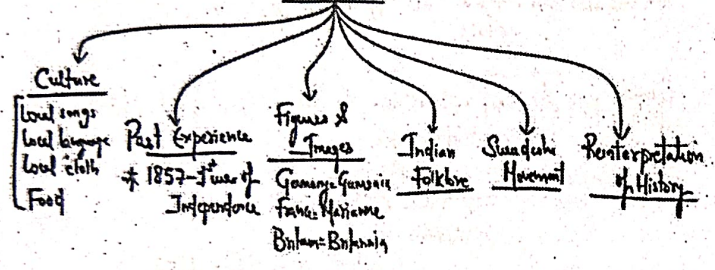 Culture
Local songs
Local language
Local cloth
Food
Past Experience
* 1857-1st war of
Independence
Figures &
Images
Germany=Germania
France=Marianne
Britain=Britannia
Indian
Folklore
Swadeshi
Movement
Reinterpretation
of History